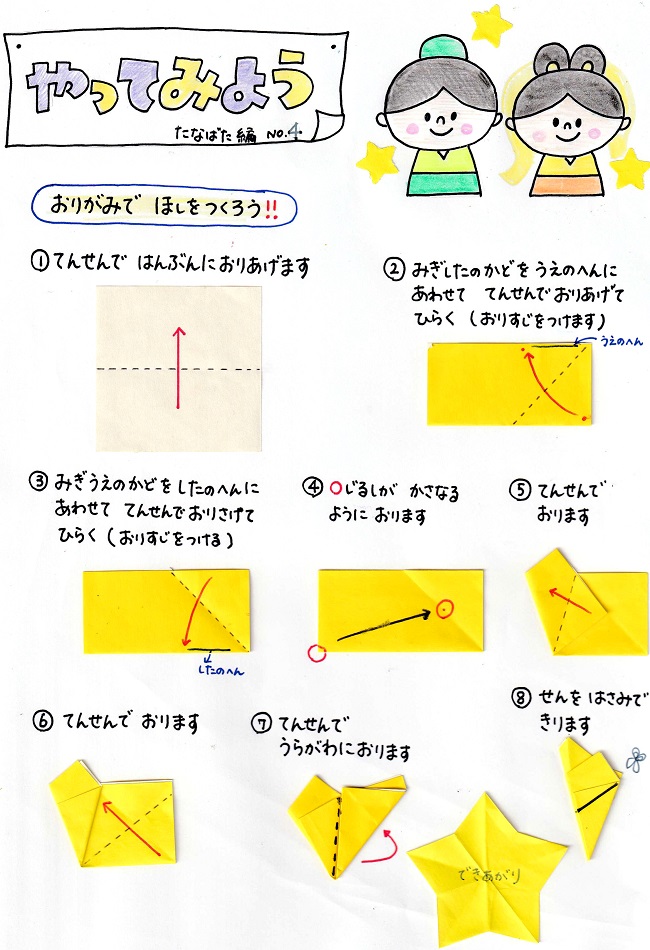 やってみよう
たなばた編 No.4
おりがみで ほしをつくろう!!
① てんせんで はんぶんにおりあげます
② みぎしたのかどをうえのへんに
あわせて てんせんでおりあげて
ひらく (おりすじをつけます)
うえのへん
③ みぎうえのかどをしたのへんに
あわせて てんせんでおりさげて
ひらく (おりすじをつける)
したのへん
④ ○じるしが かさなる
ように おります
⑤ てんせんで
おります
⑥ てんせんで おります
⑦ てんせんで
うらがわにおります
⑧ せんを はさみで
きります
できあがり